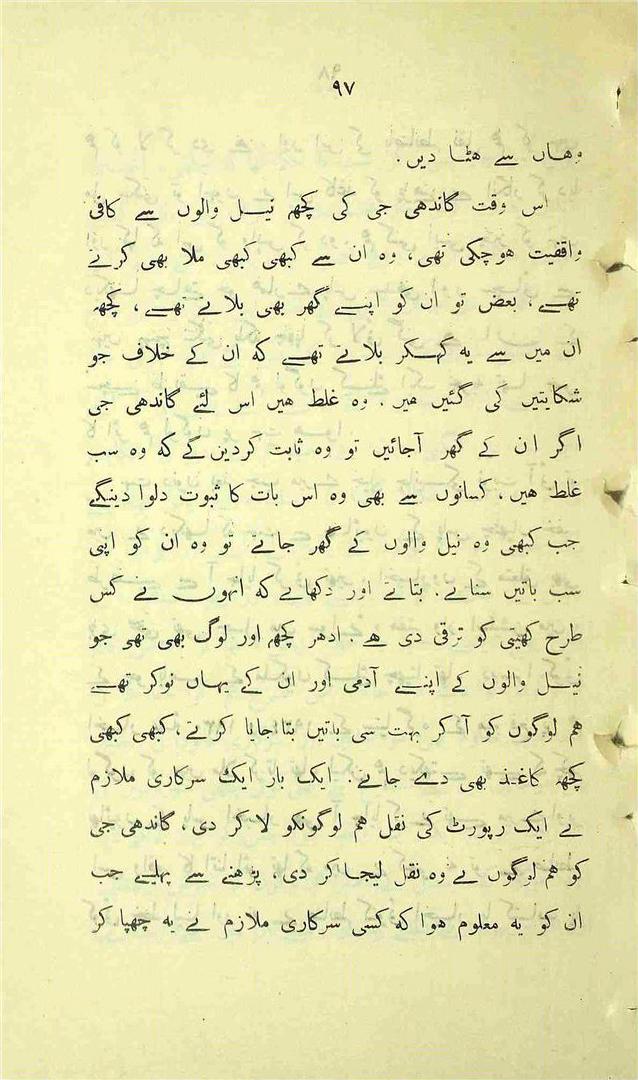 ۹۷
وہاں سے ہٹا دیں.
اس وقت گاندھی جی کی کچھ نیل والوں سے کافی
واقفیت ہوچکی تھی، وہ ان سے کبھی کبھی ملا بھی کرتے
تھے، بعض تو ان کو اپنے گھر بھی بلاتے تھے، کچھ
ان میں سے یہ کہکر بلاتے تھے کہ ان کے خلاف جو
شکایتیں کی گئیں ہیں. وہ غلط ہیں اس لئے گاندھی جی
اگر ان کے گھر آجائیں تو وہ ثابت کردین گے کہ وہ سب
غلط ہیں، کسانوں سے بھی وہ اس بات کا ثبوت دلوا دینگے
جب کبھی وہ نیل والوں کے گھر جاتے تو وہ ان کو اپنی
سب باتیں سناتے. بتاتے اور دکھاتے کہ انہوں نے کس
طرح کھیتی کو ترقی دی ہے. ادھر کچھ اور لوگ بھی تھی جو
نیل والوں کے اپنے آدمی اور ان کے یہاں نوکر تھے
ہم لوگوں کو آ کر بہت سی باتیں بتا جایا کرتے، کبھی کبھی
کچھ کاغذ بھی دے جاتے. ایک بار ایک سرکاری ملازم
نے ایک رپورٹ کی نقل ہم لوگونکو لا کر دی، گاندھی جی
کو ہم لوگوں نے وہ نقل لیجا کر دی، پڑھنے سے پہلے جب
ان کو یہ معلوم ہوا کہ کسی سرکاری ملازم نے یہ چھپا کر